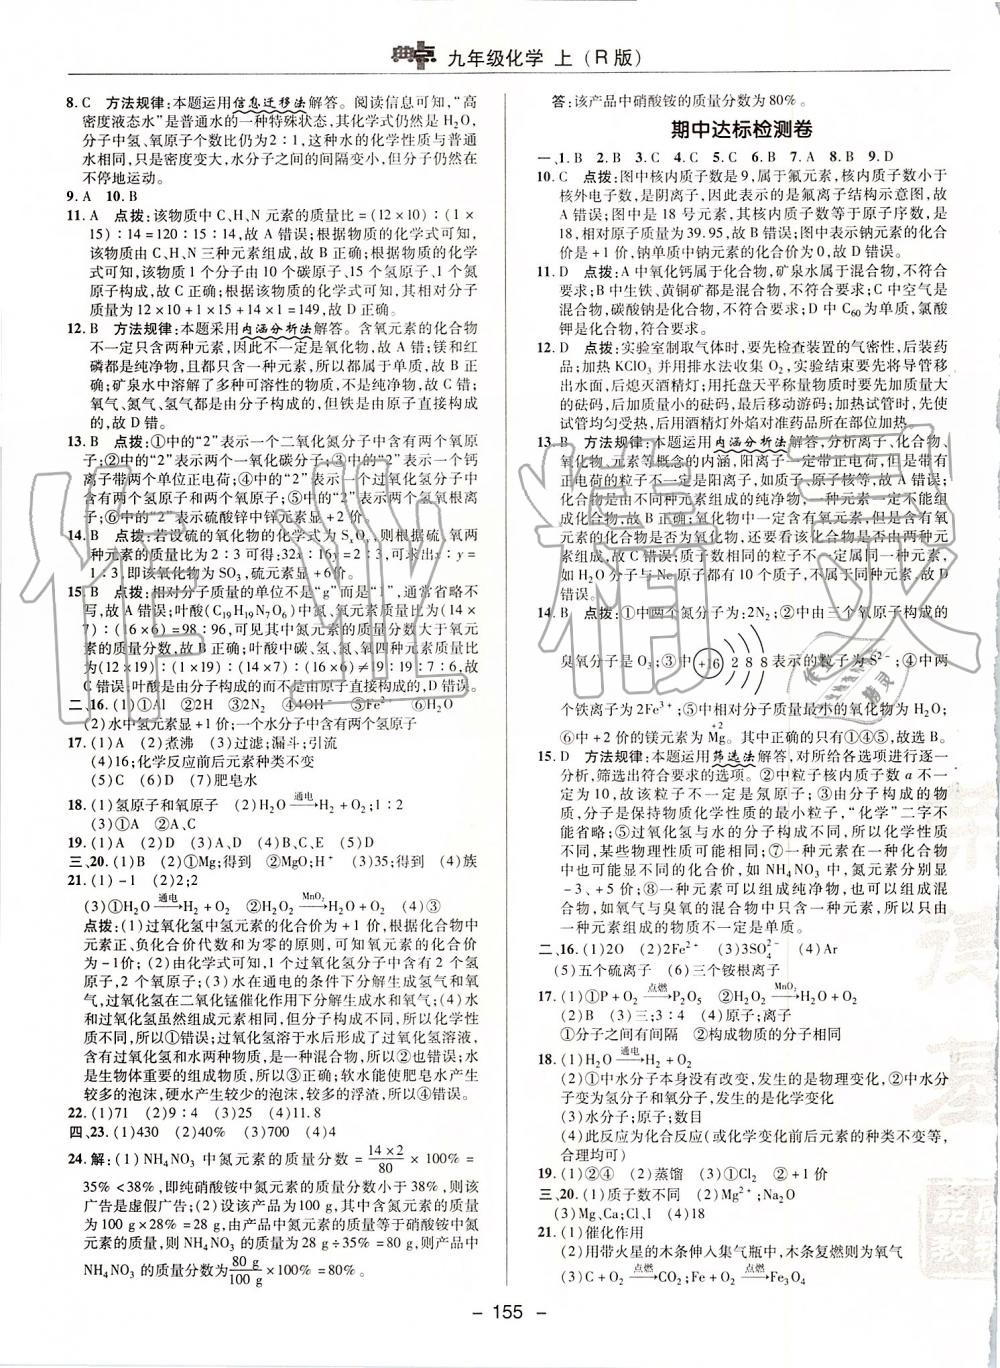 典点 九年级化学 上(R版)
8. C 方法规律:本题运用信息迁移法解答。阅读信息可知，“高
密度液态水”是普通水的一种特殊状态，其化学式仍然是H₂O，
分子中氢、氧原子个数比仍为2∶1，这种水的化学性质与普通
水相同，只是密度变大，水分子之间的间隔变小，但分子仍然在
不停地运动。
9. A 10. B
11. A 点拨:该物质中C、H、N元素的质量比=(12×10)∶(1×
15)∶14=120∶15∶14，故A错误；根据物质的化学式可知，
该物质由C、H、N三种元素组成，故B正确；根据物质的化学
式可知，该物质1个分子由10个碳原子、15个氢原子、1个氮
原子构成，故C正确；根据该物质的化学式可知，其相对分子
质量为12×10+1×15+14×1=149，故D正确。
12. B 方法规律:本题采用内涵分析法解答。含氧元素的化合物
不一定只含两种元素，因此不一定是氧化物，故A错；镁和红
磷都是纯净物，且都只含一种元素，所以都属于单质，故B正
确；矿泉水中溶解了多种可溶性的物质，不是纯净物，故C错；
氧气、氮气、氢气都是由分子构成的，但铁是由原子直接构成
的，故D错。
13. B 点拨:①中的“2”表示一个二氧化氮分子中含有两个氧原
子；②中的“2”表示两个一氧化碳分子；③中的“2”表示一个钙
离子带两个单位正电荷；④中的“2”表示一个过氧化氢分子中
含有两个氢原子和两个氧原子；⑤中的“2”表示两个氢氧根离
子；⑥中的“2”表示硫酸锌中锌元素显+2价。
14. B 点拨:若设硫的氧化物的化学式为SₓOᵧ，则根据硫、氧两
种元素的质量比为2∶3可得:32x∶16y=2∶3，可求出x∶y=
1∶3，即该氧化物为SO₃，硫元素显+6价。
15. B 点拨:相对分子质量的单位不是“g”而是“1”，通常省略不
写，故A错误；叶酸(C₁₉H₁₉N₇O₆)中氮、氧元素质量比为(14×
7)∶(16×6)=98∶96，可见其中氮元素的质量分数大于氧元
素的质量分数，故B正确；叶酸中碳、氢、氮、氧四种元素质量比
为(12×19)∶(1×19)∶(14×7)∶(16×6)≠19∶19∶7∶6，故
C错误；叶酸是由分子构成的而不是由原子直接构成的，D错误。
二、16. (1)①Al ②2H ③2N₂ ④4OH⁻ ⑤Fe²⁺ ⑥H₂O
(2)水中氢元素显+1价；一个水分子中含有两个氢原子
17. (1)A (2)煮沸 (3)过滤；漏斗；引流
(4)16；化学反应前后元素种类不变
(5)C (6)D (7)肥皂水
18. (1)氢原子和氧原子 (2)H₂O —通电→ H₂+O₂；1∶2
(3)①A ②A、C
19. (1)A (2)D (3)A、C、D (4)B、C、E (5)D
三、20. (1)B (2)①Mg；得到 ②MgO；H⁺ (3)35；得到 (4)族
21. (1)-1 (2)2；2
(3)①H₂O —通电→ H₂+O₂ ②H₂O₂ —MnO₂→ H₂O+O₂ (4)③
点拨:(1)过氧化氢中氢元素的化合价为+1价，根据化合物中
元素正、负化合价代数和为零的原则，可知氧元素的化合价
为-1；(2)由化学式可知，1个过氧化氢分子中含有2个氢原
子，2个氧原子；(3)水在通电的条件下分解生成氢气和氧
气，过氧化氢在二氧化锰催化作用下分解生成水和氧气；(4)水
和过氧化氢虽然组成元素相同，但分子构成不同，所以化学性
质不同，所以①错误；过氧化氢溶于水后形成了过氧化氢溶液，
含有过氧化氢和水两种物质，是一种混合物，所以②也错误；水
是生物体重要的组成物质，所以③正确；软水能使肥皂水产生
较多的泡沫，硬水产生较少的泡沫，较多的浮渣，所以④错误。
22. (1)71 (2)9∶4 (3)25 (4)11.8
四、23. (1)430 (2)40% (3)700 (4)4
24. 解:(1)NH₄NO₃中氮元素的质量分数=14×2/80×100%=
35%<38%，即纯硝酸铵中氮元素的质量分数小于38%，则该
广告是虚假广告；(2)设该产品为100 g，其中氮元素的质量为
100 g×28%=28 g，由产品中氮元素的质量等于硝酸铵中氮
元素的质量，则硝酸铵的质量为28 g÷35%=80 g，则产品中
NH₄NO₃的质量分数为80 g/100 g×100%=80%。
答:该产品中硝酸铵的质量分数为80%。
期中达标检测卷
一、1. B 2. B 3. C 4. C 5. C 6. B 7. A 8. B 9. D
10. C 点拨:图中核内质子数是9，属于氟元素，核内质子数小于
核外电子数，是阴离子，因此表示的是氟离子结构示意图，故
A错误；图中是18号元素，其核内质子数等于原子序数，是
18，相对原子质量为39.95，故B错误；图中表示钠元素的化合
价是+1价，钠单质中钠元素的化合价为0，故D错误。
11. D 点拨:A中氧化钙属于化合物，矿泉水属于混合物，不符合
要求；B中生铁、黄铜矿都是混合物，不符合要求；C中空气是
混合物，氧化镁是化合物，不符合要求；D中C₆₀为单质，氯酸
钾是化合物，符合要求。
12. D 点拨:实验室制取气体时，要先检查装置的气密性，后装药
品；加热KClO₃并用排水法收集O₂，实验结束时要先将导管移
出水面，后熄灭酒精灯；用托盘天平称量物质时要先加质量大
的砝码，后加质量小的砝码，最后移动游码；加热试管时，先使
试管均匀受热，后用酒精灯外焰对准药品所在部位加热。
13. B 方法规律:本题运用内涵分析法解答，分析离子、化合物、
氧化物、元素等概念的内涵，阳离子一定带正电荷，但是带有
正电荷的粒子不一定是阳离子，如质子、原子核等，故A错误；
化合物是由不同种元素组成的纯净物，一种元素一定不能组
成化合物，故B正确；氧化物中一定含有氧元素，但是含有氧
元素的化合物是否为氧化物，还要看该化合物是否由两种元
素组成，故C错误；质子数相同的粒子不一定是同种元素，例
如H₂O分子与Ne原子都有10个质子，不属于同种元素，故D
错误。
14. B 点拨:①中两个氮分子为:2N₂；②中由三个氧原子构成的
臭氧分子是O₃；③中 +16 2 8 8 表示的粒子为S²⁻；④中两
个铁离子为2Fe³⁺；⑤中相对分子质量最小的氧化物为H₂O；
⑥中+2价的镁元素为Mg(+2)。其中正确的只有①④⑤，故选B。
15. D 方法规律:本题运用筛选法解答，对所给各选项进行逐一
分析，筛选出符合要求的选项。②中粒子核内质子数a不一
定为10，故该粒子不一定是氖原子；③由分子构成的物
质，分子是保持物质化学性质的最小粒子，“化学”二字不
能省略；⑤过氧化氢与水的分子构成不同，所以化学性质
不同，某些物理性质可能相同；⑦一种元素在同一种化合
物中可能显不同的化合价，如NH₄NO₃中，氮元素分别显
-3、+5价；⑧一种元素可以组成纯净物，也可以组成混合
物，如氧气与臭氧的混合物中只含一种元素，所以只由一
种元素组成的物质不一定是单质。
二、16. (1)2O (2)2Fe²⁺ (3)3SO₄²⁻ (4)Ar
(5)五个硫离子 (6)三个铵根离子
17. (1)①P+O₂ —点燃→ P₂O₅ ②H₂O₂ —MnO₂→ H₂O+O₂
(2)B (3)三；3∶4 (4)原子；离子
①分子之间有间隔 ②构成物质的分子相同
18. (1)H₂O —通电→ H₂+O₂
(2)①中水分子本身没有改变，发生的是物理变化，②中水分
子变为氢分子和氧分子，发生的是化学变化
(3)水分子；原子；数目
(4)此反应为化合反应(或化学变化前后元素的种类不变等，
合理均可)
19. (1)②④ (2)蒸馏 (3)①Cl₂ ②+1价
三、20. (1)质子数不同 (2)Mg²⁺；Na₂O
(3)Mg、Ca；Cl、I (4)18
21. (1)催化作用
(2)用带火星的木条伸入集气瓶中，木条复燃则为氧气
(3)C+O₂ —点燃→ CO₂；Fe+O₂ —点燃→ Fe₃O₄
- 155 -
作业精灵